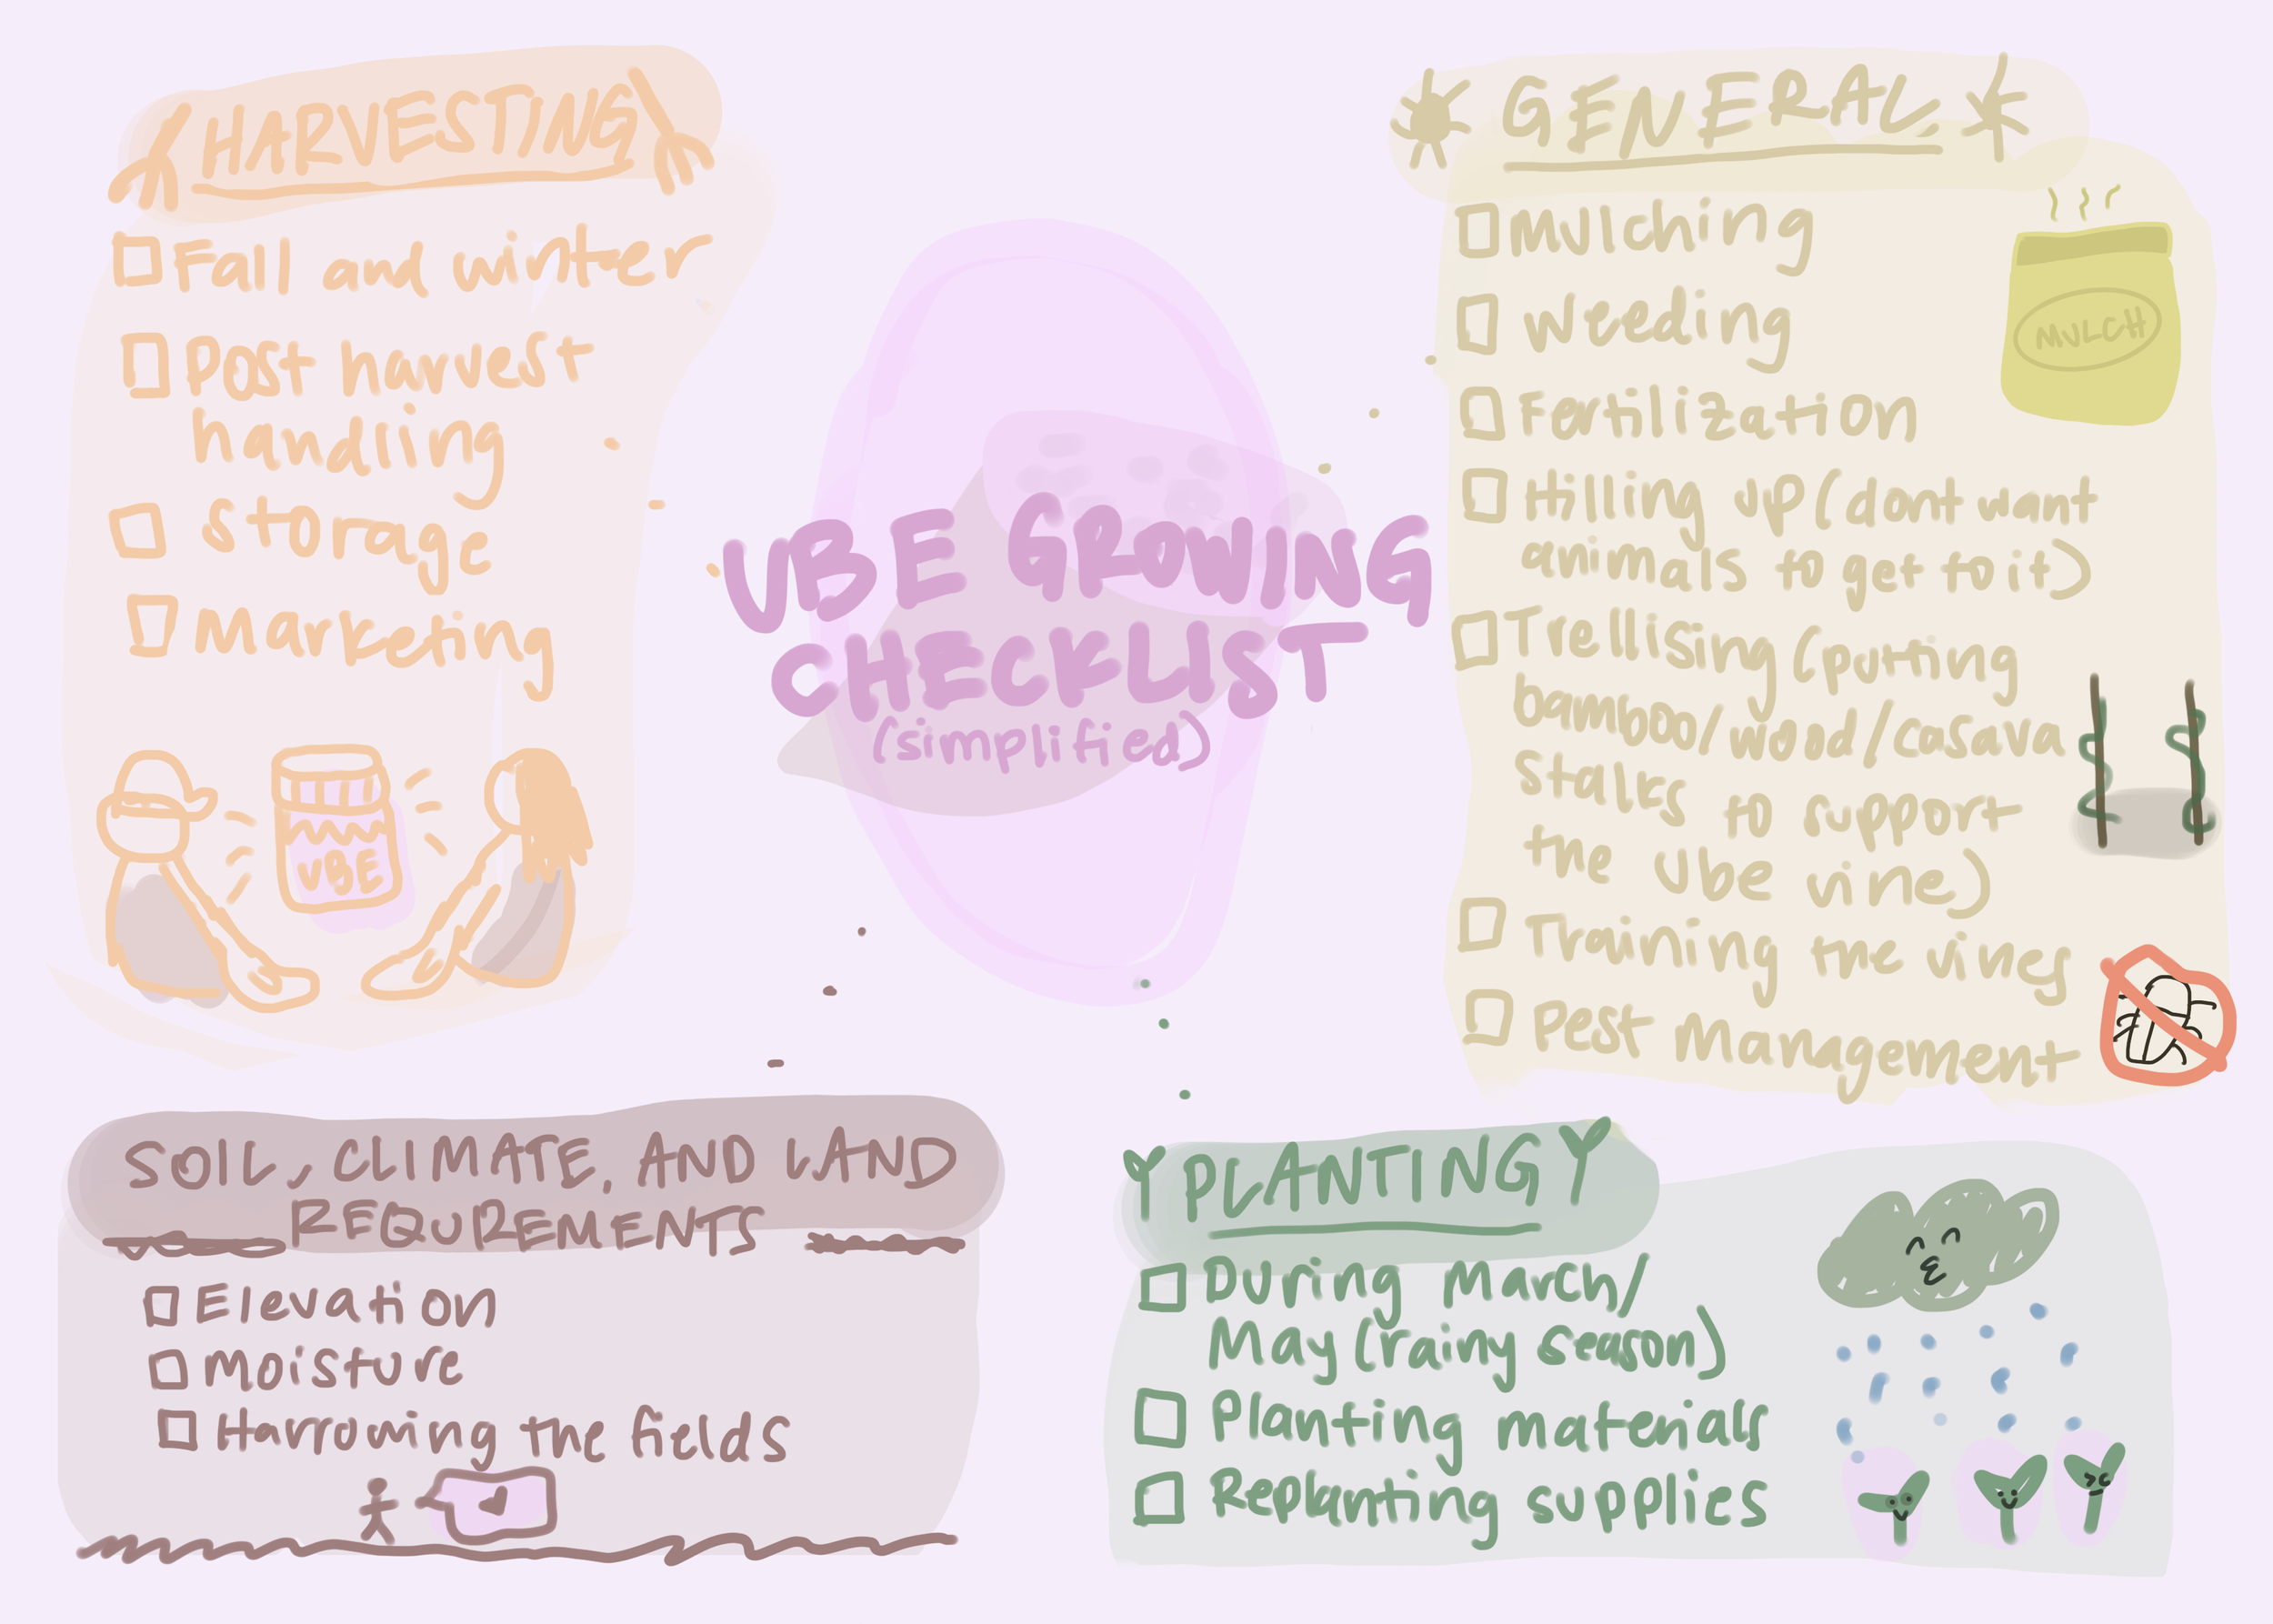 HARVESTING
Fall and winter
Post harvest
handling
storage
Marketing
UBE
UBE GROWING
CHECKLIST
(simplified)
GENERAL
Mulching
weeding
Fertilization
Hilling up (dont want
animals to get to it)
Trellising (putting
bamboo/wood/casava
stalks to support
the ube vine)
Training the vines
Pest management
MULCH
SOIL, CLIMATE, AND LAND
REQUREMENTS
Elevation
Moisture
Harrowing the fields
PLANTING
During March/
May (rainy season)
Planting materials
Replanting supplies